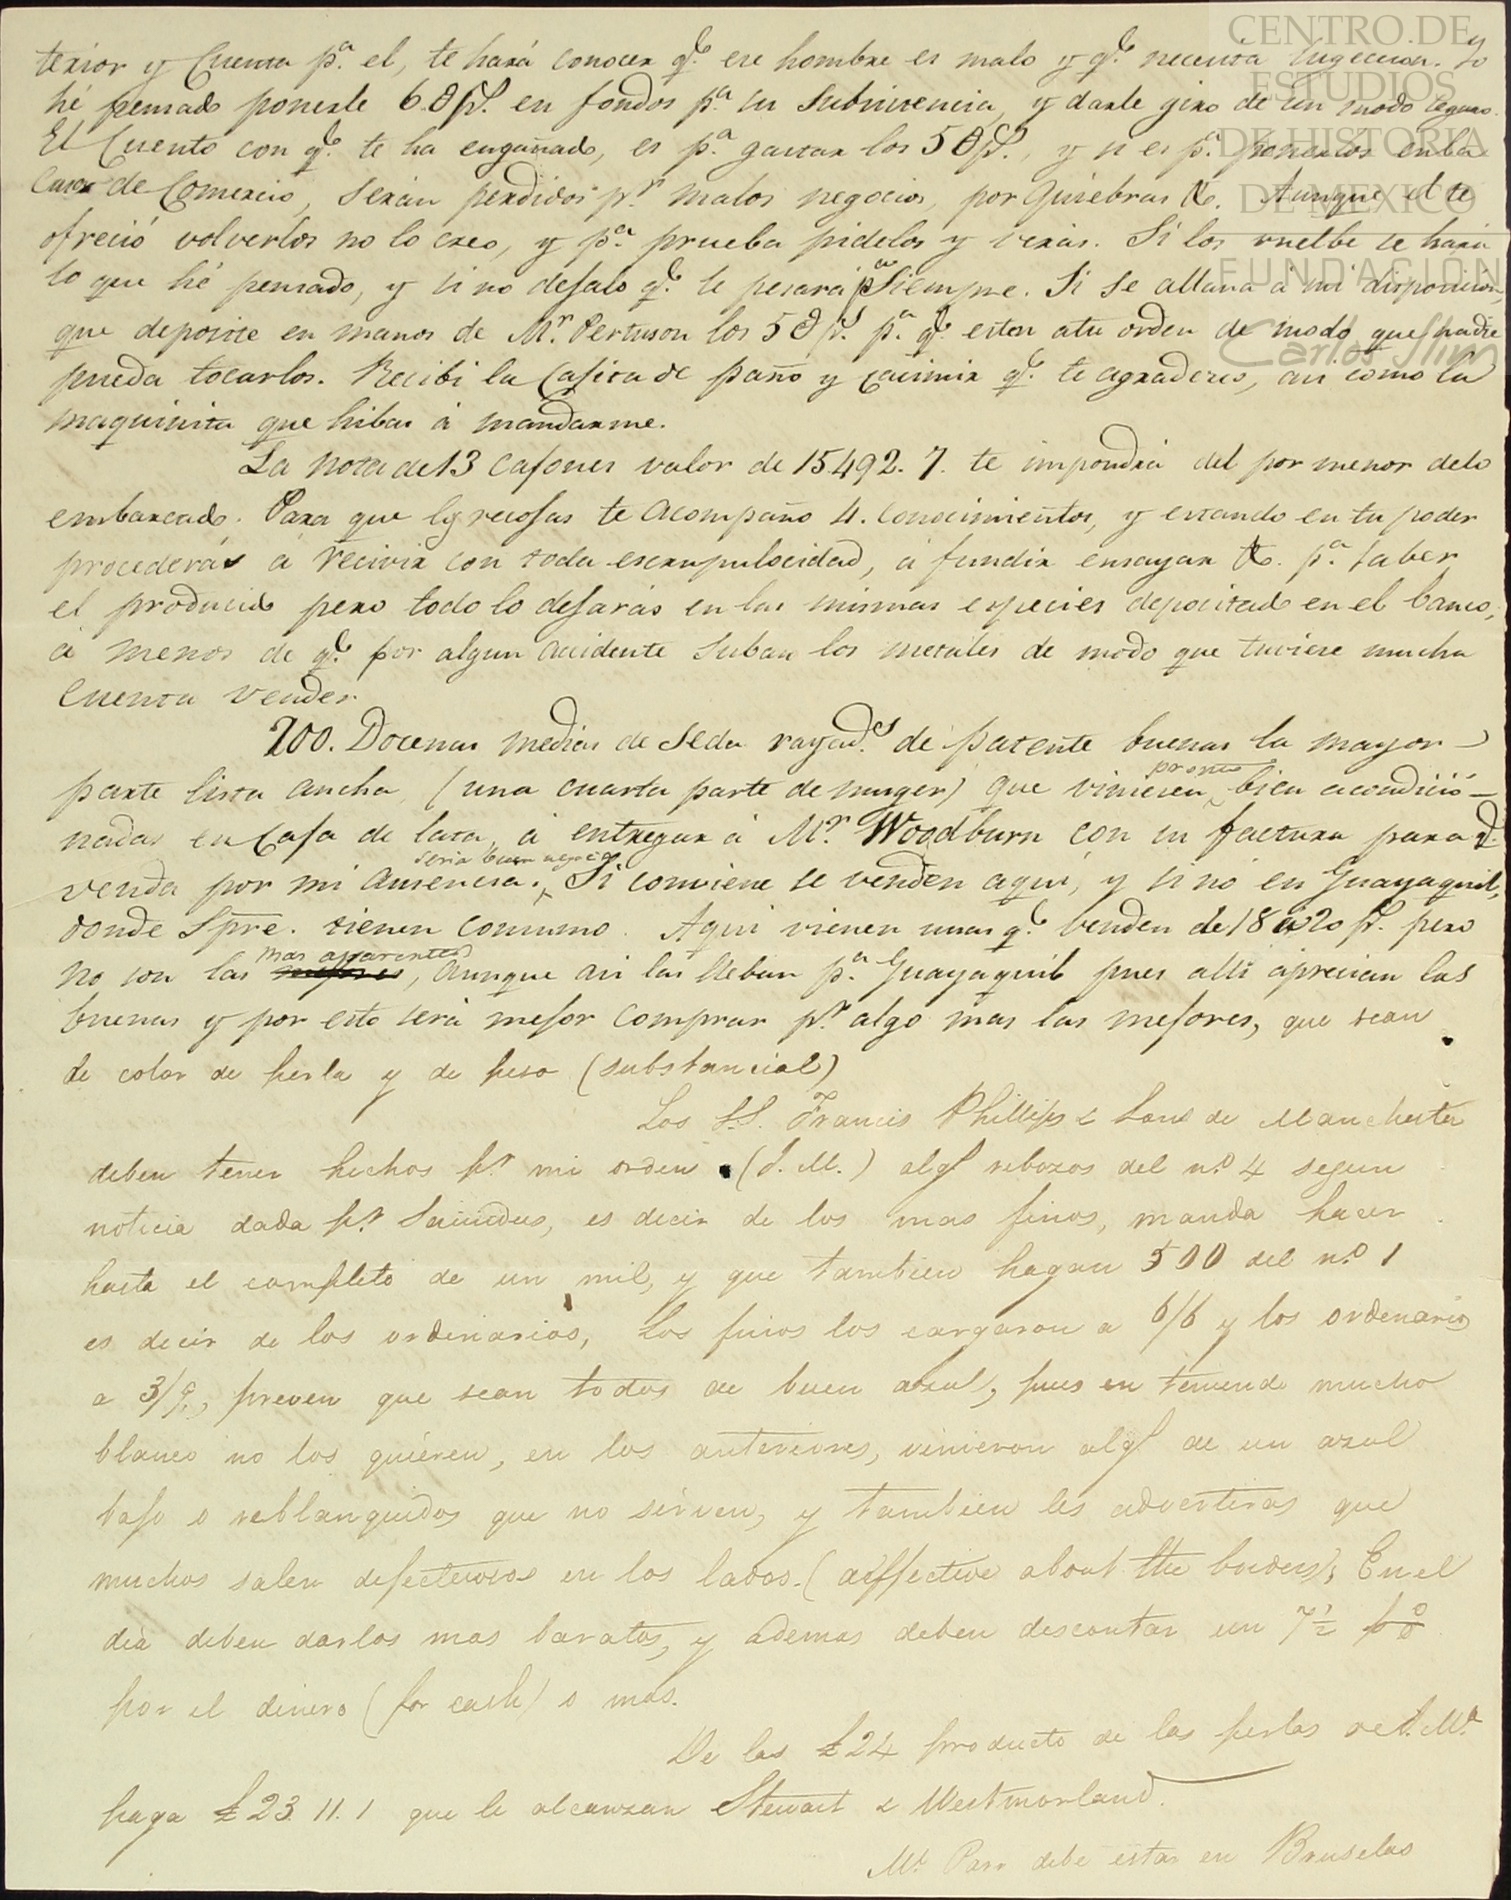 CENTRO DE
ESTUDIOS
DE HISTORIA
DE MEXICO
FUNDACIÓN
Carlos Slim
terior y Cuenta pª. el, te hará conocer qᵉ. ese hombre es malo y qᵉ. necesita sugecion. Yo
hé pensado ponerle 6.0 pˢ. en fondos pª. su subsistencia, y darle giro de un modo seguro.
El Cuento con qᵉ. te ha engañado, es pª. gastar los 50pˢ., y si es pª. ponerlos en la
Casa de Comercio, serán perdidos pʳ. malos negocios, por Quiebras &. Aunque el te
ofreció volverlos no lo creo, y pª. prueba pidelos y verás. Si los vuelbe se hará
lo que hé pensado, y si no dejalo qᵉ. le pesará pª Siempre. Si se allana á mi disposicion,
que deposite en manos de Mʳ. Pertuson los 50 pˢ. pª. qᵉ. esten atu orden de modo que nadie
pueda tocarlos. Recibi la Cajita de paño y casimir qᵉ. te agradezco, asi como la
maquinita que hibas á mandarme.
La nota de 13 Cajones valor de 15.492. 7. te impondrá del por menor delo
embarcado. Para que lo recojas te acompaño 4. conocimientos, y estando en tu poder
procederás á recivir con toda escrupulosidad, á fundir ensayar &. pª. saber
el producido pero todo lo dejarás en las mismas especies depositado en el banco,
á menos de qᵉ. por algun accidente suban los metales de modo que tuviese mucha
cuenta vender.
200. Docenas medias de seda rayadˢ. de patente buenas la mayor
parte lista ancha, (una cuarta parte de muger) que viniesen pronto bien acondició-
nadas en Caja de lata, á entregar á Mʳ. Woodburn con su factura para qᵉ.
venda por mi ausencia. seria buen negocio Si conviene se venden aqui, y si nó en Guayaquil,
donde Spre. tienen consumo. Aqui vienen unas qᵉ. benden de 18 a 20 pˢ. pero
no son las mas aparentes, aunque asi las lleban pª. Guayaquil pues alli aprecian las
buenas y por esto será mejor comprar pʳ. algo mas las mejores, que sean
de color de perla y de peso (substancial)
Los S.S. Francis Phillips & Sons de Manchester
deben tener hechos pʳ. mi orden (J. M.) algˢ rebozos del nº 4 segun
noticia dada pʳ. Saunders, es decir de los mas finos, manda hacer
hasta el completo de un mil, y que tambien hagan 500 del nº 1
es decir de los ordinarios, Los finos los cargaron a 6/6 y los ordenarios
a 3/9, preven que sean todos de buen azul, pues en teniendo mucho
blanco no los quieren, en los anteriores, vinieron algˢ de un azul
bajo o reblanquidos que no sirven, y tambien les advertiras que
muchos salen defectuosos en los lados. (deffective about the borders), En el
dia deben darlos mas baratos, y ademas deben descontar un 7½ p%
por el dinero (for cash) o mas.
De las £24 producto de las perlas
paga £23. 11. 1 que le alcanzan Stewart & Westmorland.
Mʳ. Parr debe estar en Bruselas